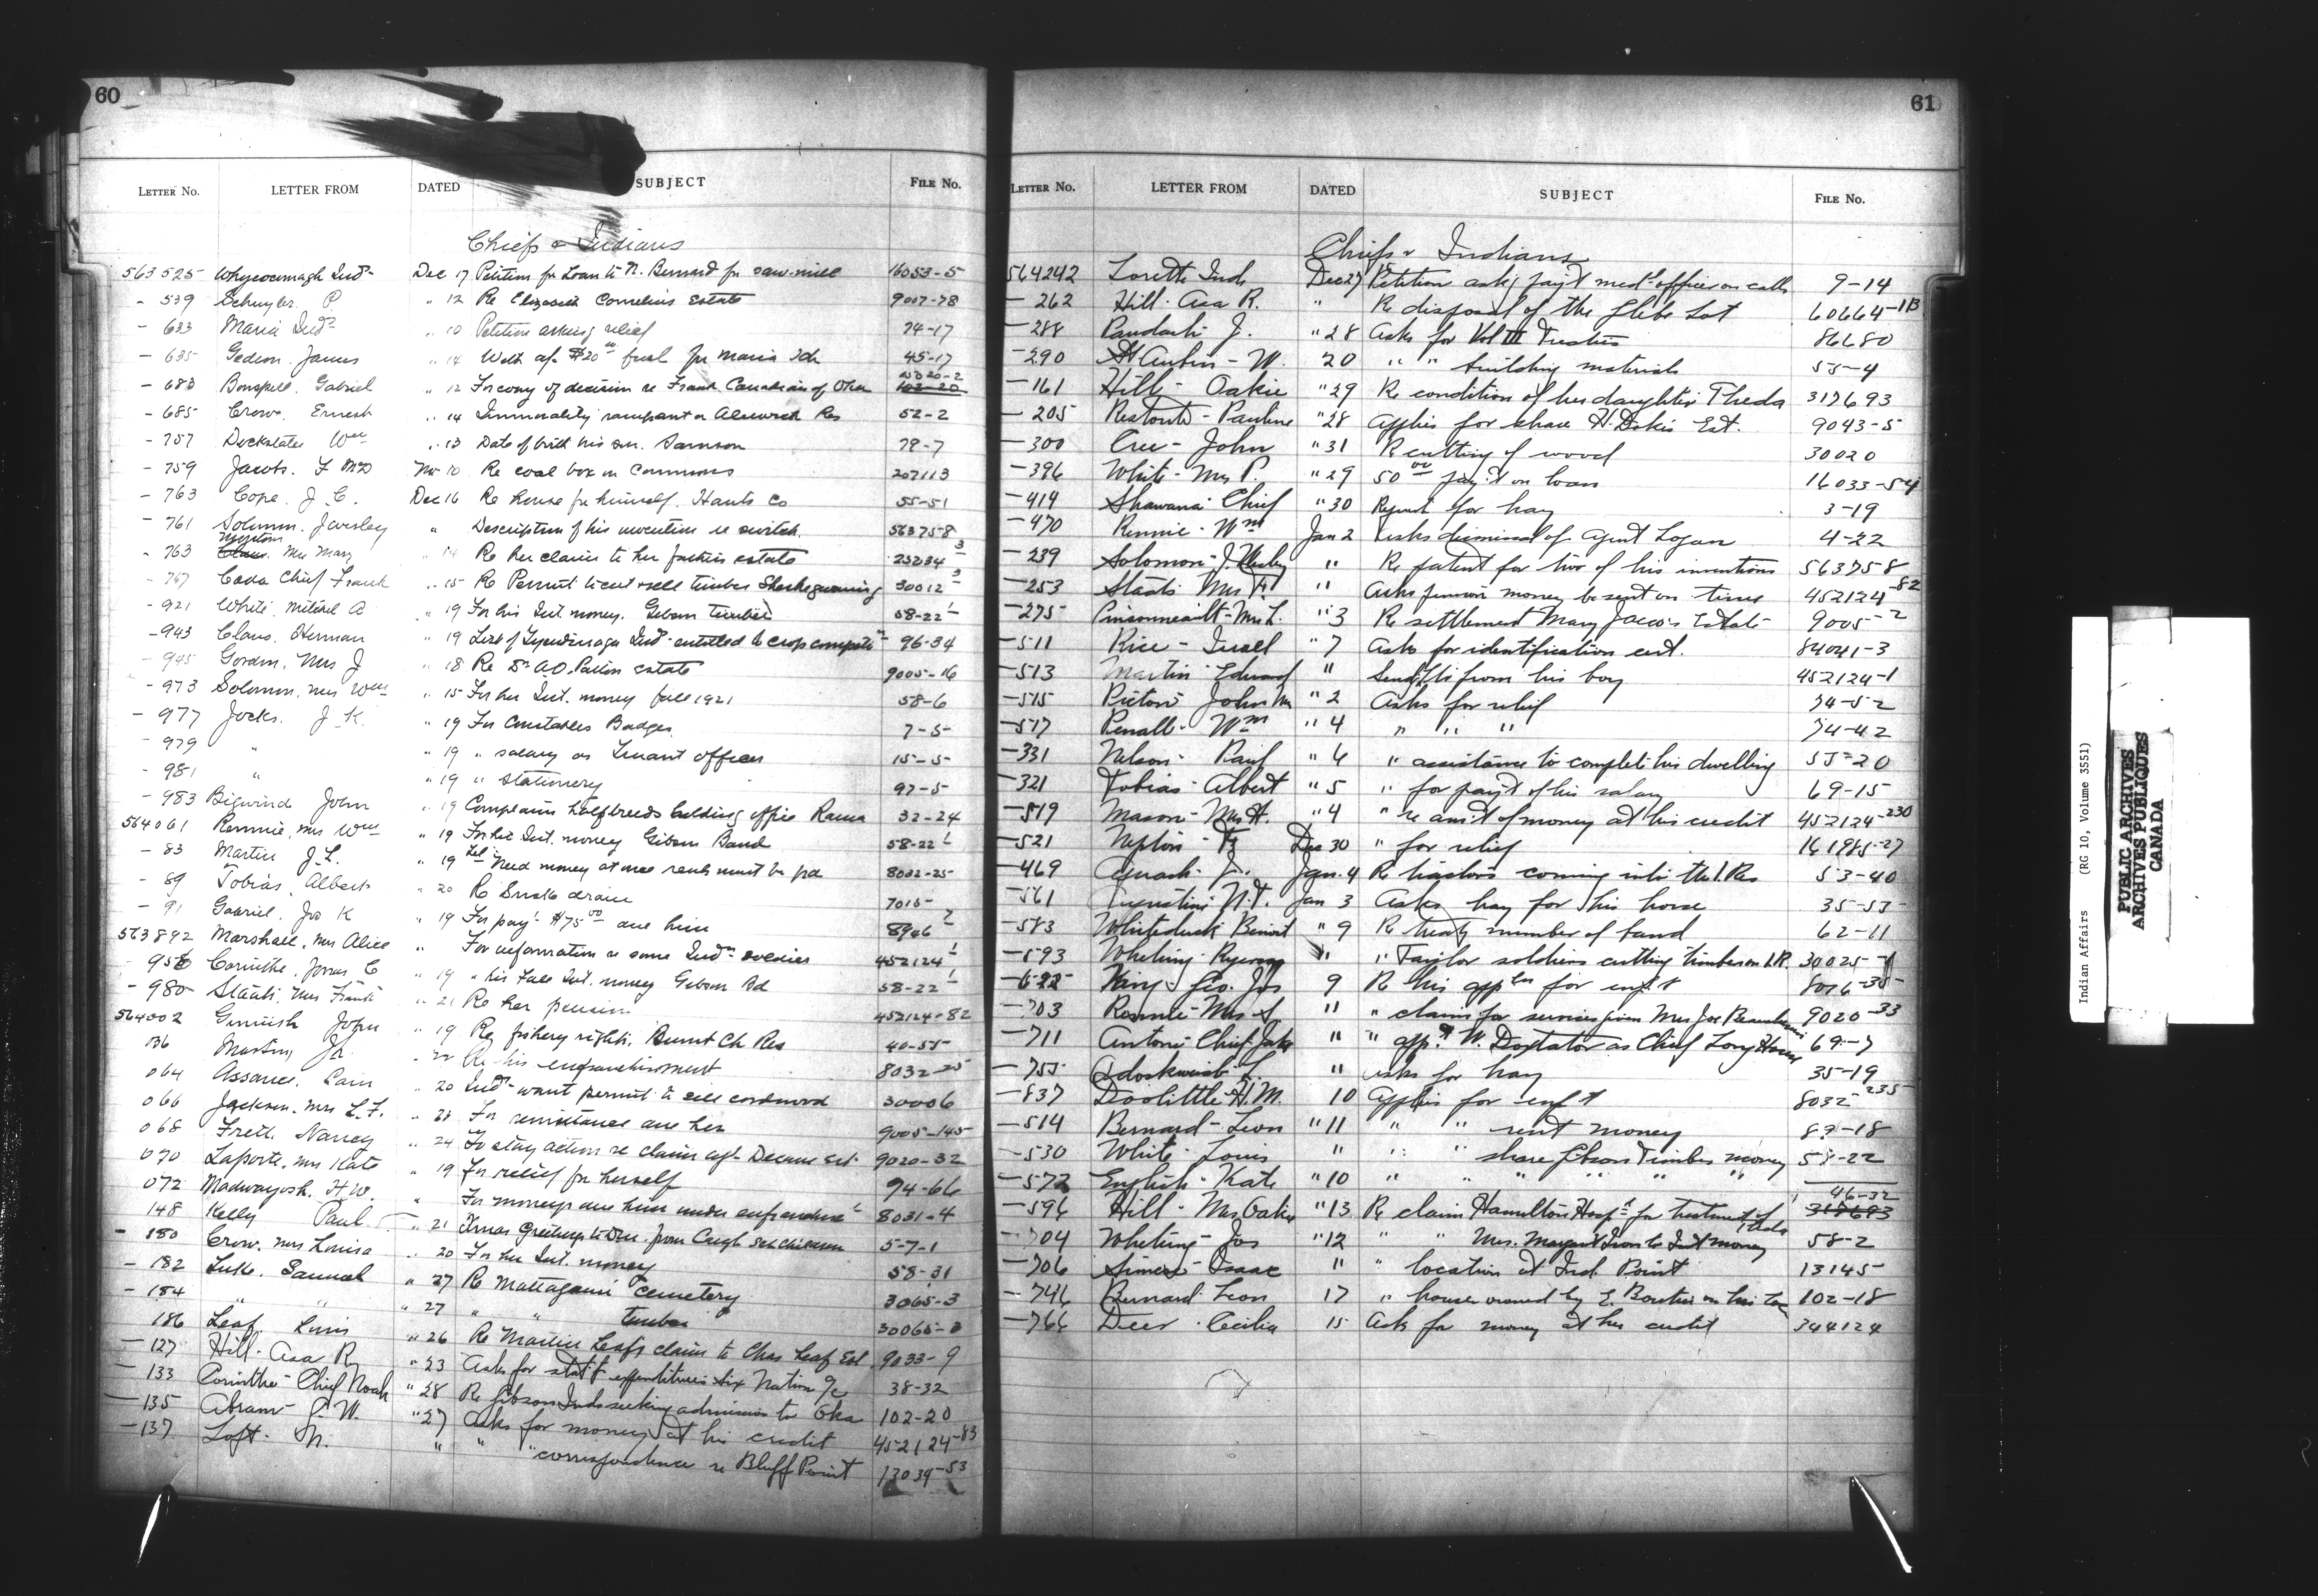 60
LETTER No. LETTER FROM DATED SUBJECT FILE No.
Chiefs & Indians
563525 Whycocomagh Inds Dec 17 Petition for Loan to N. Bernard for saw-mill 16053-5
- 539 Schuyler P " 12 Re Elizabeth Cornelius Estate 9007-78
- 633 Maria Inds " 10 Petition asking relief 74-17
- 635 Gedeon. James " 14 for Maria Ids 45-17
- 683 Bonspill. Gabriel " 12 For copy of decision re Frank Canadian of Oka 102-20
- 685 Crow. Ernest " 14 Immorality rampant on Alnwick Res 52-2
- 757 Dockstater Wm " 13 Date of birth his son. Samson 79-7
- 759 Jacobs. F Nov 10 Re coal box in Commons 207113
- 763 Cope. J. C. Dec 16 Re house for himself. Hants Co 55-51
- 761 Solomon. J. Wesley " Description of his invention re switch. 563758
- 763 Mrs Mary " 14 Re her claim to her fathers estate 25234 3
- 767 Cada Chief Frank " 15 Re Permit to cut & sell timber Sheshegwaning 30012 3
- 921 White. Mitchel A " 19 For his Int. money. Gibson timber 58-22 1
- 943 Claus. Herman " 19 List of Tyendinaga Inds entitled to crop competn 96-34
- 945 Gordon. Mrs J " 18 Re Dr. A.O. estate 9005-16
- 973 Solomon. Mrs Wm " 15 For her Int. money fall 1921 58-6
- 977 Jocks. J. K. " 19 For Constables Badges 7-5
- 979 " " 19 " salary as Truant officer 15-5
- 981 " " 19 " Stationery 97-5
- 983 Bigwind John " 19 Complains halfbreeds holding office Rama 32-24
564061 Rennie, Mrs Wm " 19 For her Int. money Gibson Band 58-22 1
- 83 Martin J. L. " 19 Tel Need money at once rent must be pd 8032-25
- 89 Tobias, Albert " 20 Re drain 7015-
- 91 Gabriel, Jos K " 19 For payt $75 00 due him 8946 2
563892 Marshall, Mrs Alice " For information re some Inds soldiers 452124 1
- 958 Corinthe. Jonas C " 19 " his fall Int. money Gibson Bd 58-22 1
- 980 Staats, Mrs Frank " 21 Re her pension 452124-82
564002 Ginnish John " 19 Re fishery rights. Burnt Ch Res 40-55
036 Martin Jr. " 22 Re his enfranchisement 8032-25
064 Assance. Sam " 20 Inds want permit to sell cordwood 30006
066 Jackson. Mrs L. F. " 23 For remittance due her 9005-145
068 Fretz. Nancy " 24 To stay action re claim agt 9020-32
070 Laporte. Mrs Kate " 19 For relief for herself 74-66
072 Madwayosh. H W. " For moneys due him under enfranchist 8031-4
148 Kelly Paul " 21 Xmas Greetings to Dept. from Caugh Sch children 5-7-1
- 180 Crow. Mrs Louisa " 20 For her Int. money 58-31
- 182 Luke. Samuel " 27 Re Mattagami Cemetery 3065-3
- 184 " " " 27 " " timber 30065-3
186 Leaf Louis " 26 Re Martin Leafs claim to Chas Leaf Est 9033-9
- 127 Hill. Asa R " 23 Asks for statt expenditures Six Nation 38-32
- 133 Corinthe - Chief Noah " 28 Re Gibson Inds seeking admission to Oka 102-20
- 135 Abram - C. W. " 27 Asks for money at his credit 452124-83
- 137 Loft - N. " " " correspondence re Bluff Point 13039-53
61
LETTER No. LETTER FROM DATED SUBJECT FILE No.
Chiefs & Indians
564242 Lorette Inds Dec 27 Petition askg payt medl officer on calls 9-14
- 262 Hill. Asa R. " Re disposal of the Glebe Lot 60664-1B
- 288 Paudash - J. " 28 Asks for Vol III Treaties 86680
- 290 St Aubin - W. 20 " " building materials 55-4
- 161 Hill - Oakie " 29 Re condition of her daughter Theda 317693
- 205 Restoule - Pauline " 28 Applies for share H. Dokis Est. 9043-5
- 300 Cree - John " 31 Re cutting of wood 30020
- 396 White - Mrs P. " 29 50 00 payt on loan 16033-54
- 414 Shawana - Chief " 30 Request for hay 3-19
- 470 Rennie - Wm Jan 2 Asks dismissal of Agent Logan 4-22
- 239 Solomon J. Wesley " Re patent for two of his inventions 563758
- 253 Staats Mrs F. " Asks pension money be sent on time 452124-82
- 275 Pinsonneault - Mrs L. " 3 Re settlement Mary Jacobs Estate 9005-2
- 511 Rice - Israel " 7 Asks for identification cert. 84041-3
- 513 Martin Edward " Sends from his boy 452124-1
- 515 Pictou John " 2 Asks for relief 74-52
- 517 Penall - Wm " 4 " " " 74-42
- 331 Nelson - Paul " 6 " assistance to complete his dwelling 55-20
- 321 Tobias - Albert " 5 " for payt of his salary 69-15
- 519 Mason - Mrs H. " 4 " re amt of money at his credit 452124-230
- 521 Nepton - F Dec 30 " for relief 161985-27
- 469 J. Jan. 4 Re traders coming into the I. Res 53-40
- 561 Augustine N.T. Jan 3 Asks hay for his horse 35-55
- 583 Whiteduck Benoit " 9 Re treaty number of band 62-11
- 593 Whetung - " " soldiers cutting timber on I.R. 30025-4
- 622 King - Geo. Jos 9 Re his appln for enft 8076-35
- 703 Rennie - Mrs S " " claims for services given Mrs Joe 9020-33
- 711 Antoine Chief Jake " " appt W. Doxtator as Chief Long House 69-7
- 755 L. " Asks for hay 35-19
- 837 Doolittle H. M. 10 Applies for enft 8032-235
- 514 Bernard - Leon " 11 " " rent money 89-18
- 530 White - Louis " " " share Gibson Timber money 58-22
- 572 English - Kate " 10 " " " " "
- 596 Hill - Mrs Oakie " 13 Re claim Hamilton Hospl for treatment of Theda 46-32 317693
- 704 Whetung - Jos " 12 " " Mrs. Margaret to Int money 58-2
- 706 Simes - Isaac " " location at Ind. Point 13145
- 746 Bernard - Leon 17 " house owned by on his 102-18
- 766 Deer - Cecilia 15 Ask for money at her credit 344124
Indian Affairs (RG 10, Volume 3551)
PUBLIC ARCHIVES
ARCHIVES PUBLIQUES
CANADA